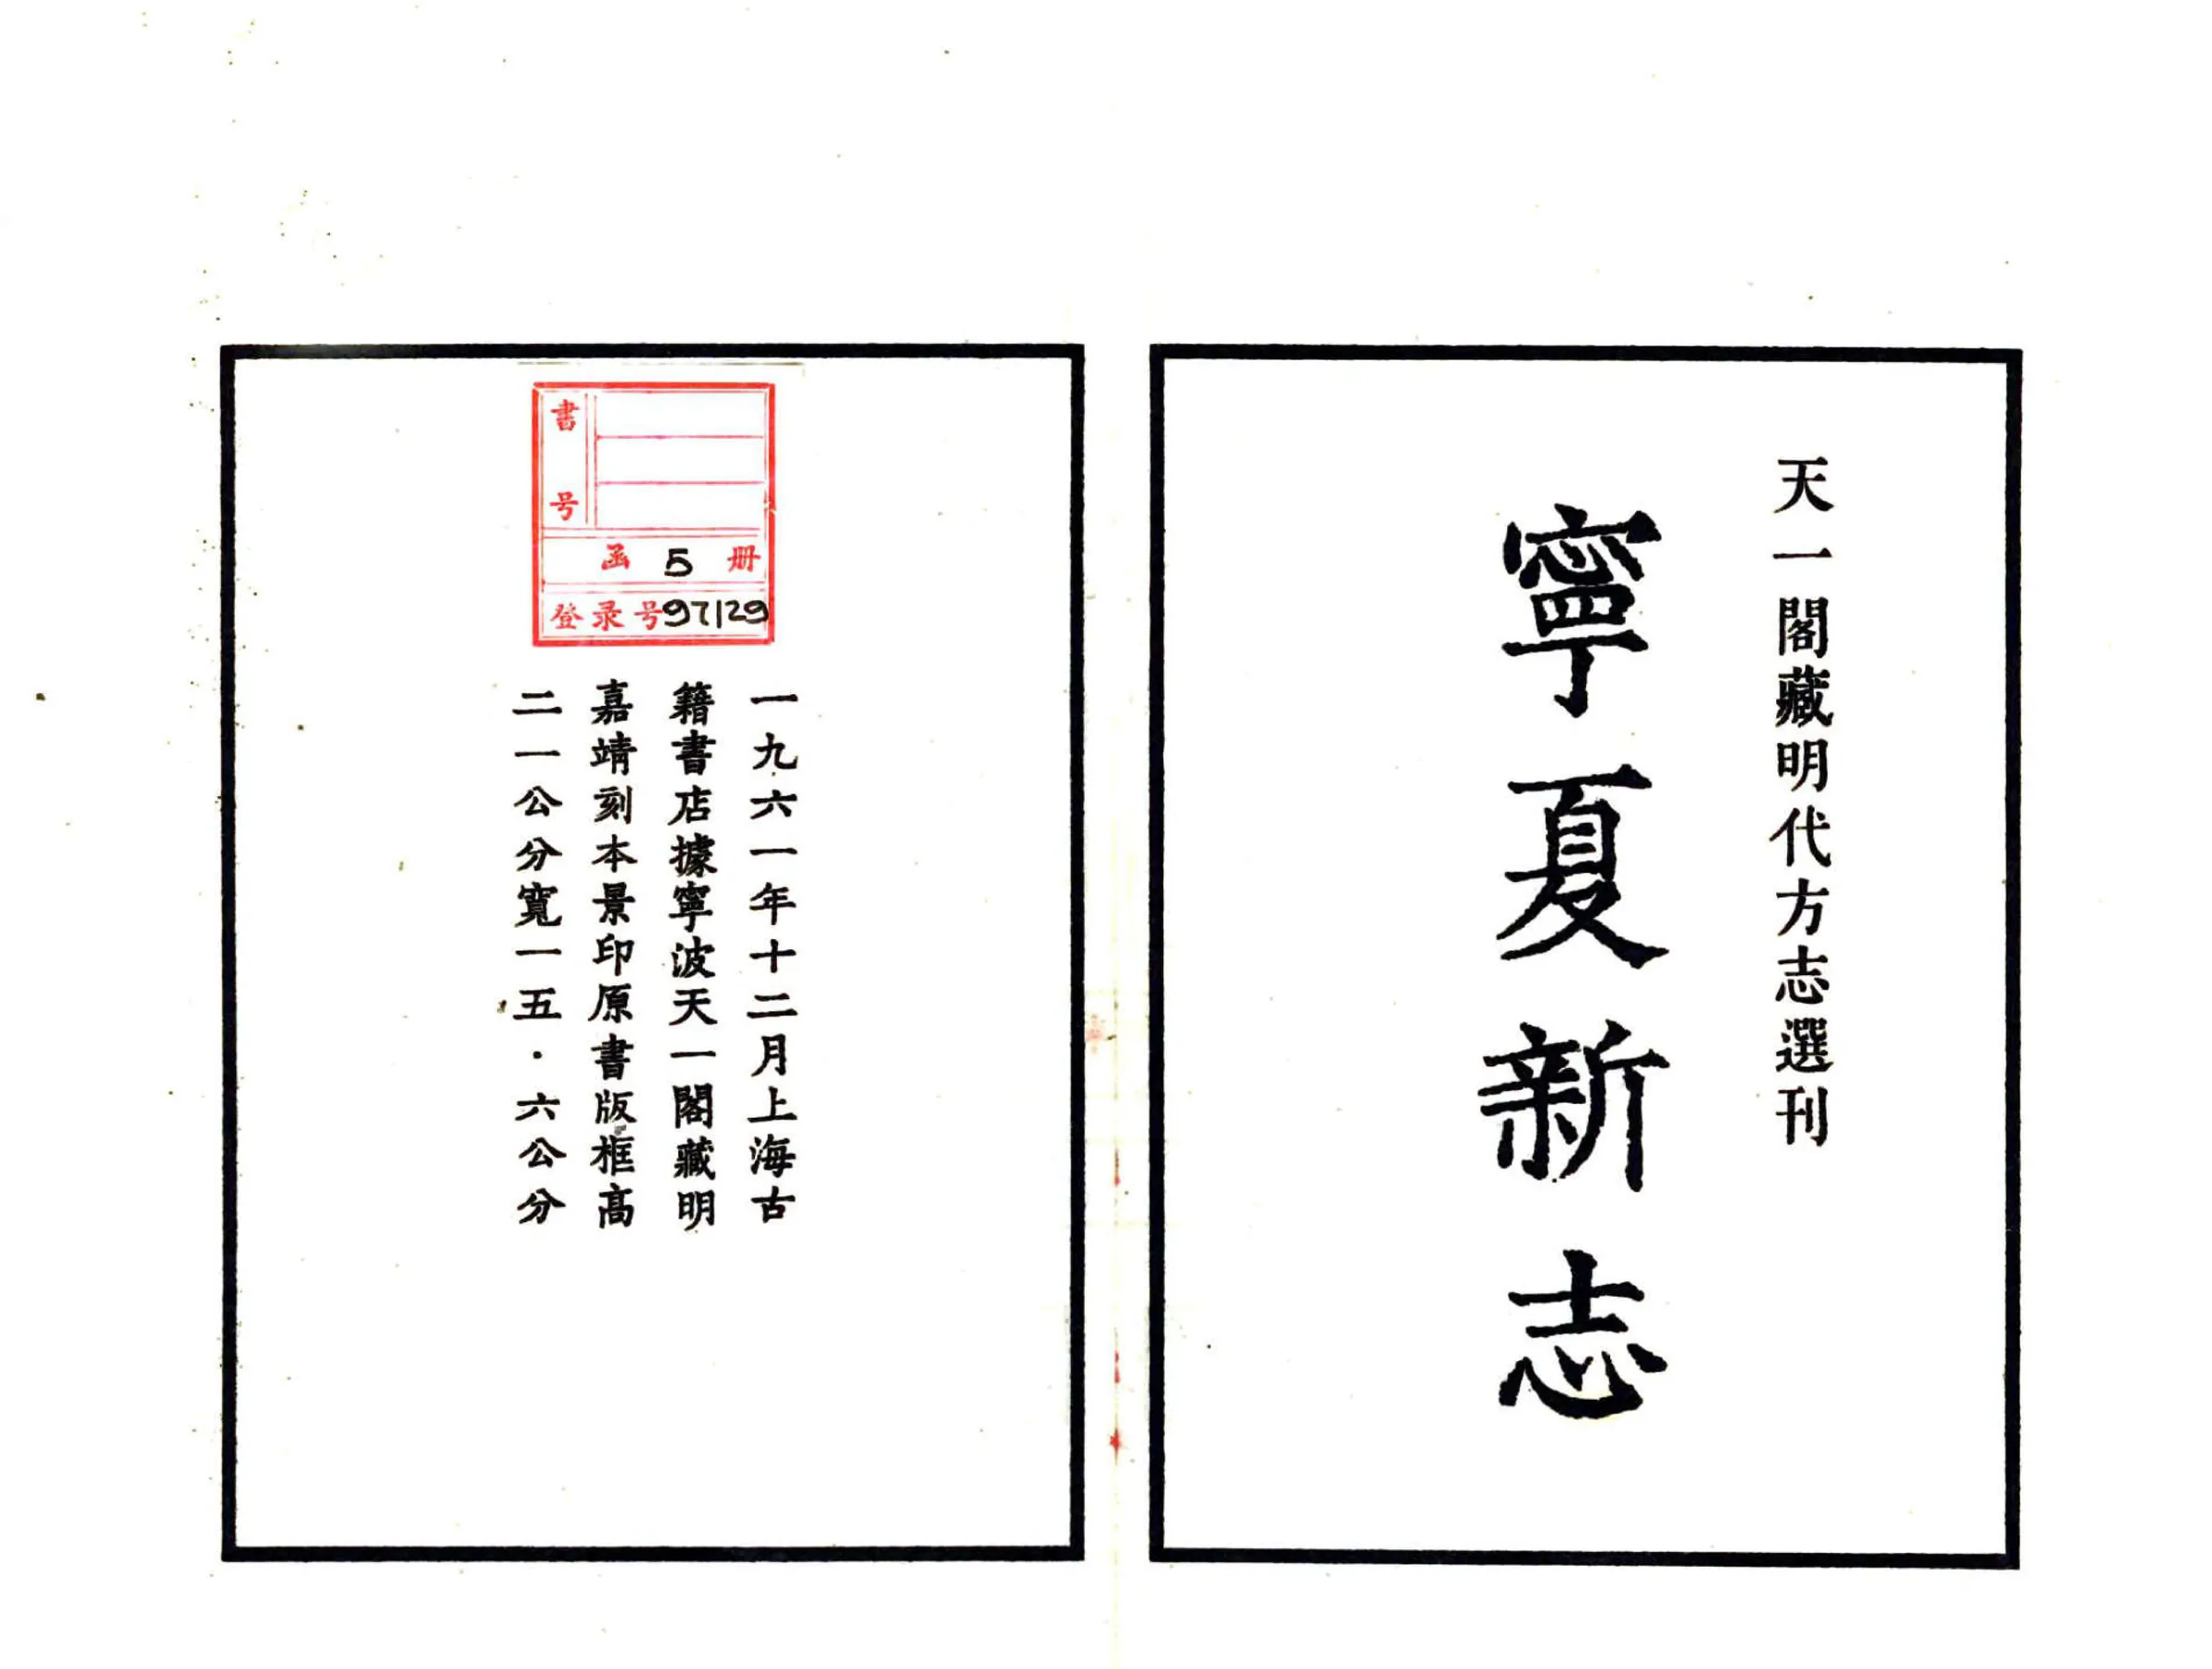 天一閣藏明代方志選刊
寧夏新志
書号
函 5 册
登录号97129
一九六一年十二月上海古
籍書店據寧波天一閣藏明
嘉靖刻本景印原書版框高
二一公分寬一五·六公分